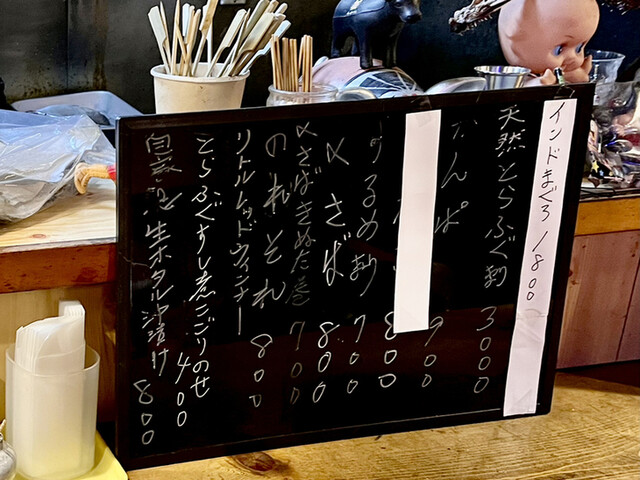 インドまぐろ 1800
天然とらふぐ刺 3000
かんぱ 900
800
するめ刺 700
〆さば 800
〆さばきぬた巻 700
のれそれ
リトルレッドウィンナー 800
とらふぐすし煮こごりのせ 400
自家 生ホタル沖漬け 800